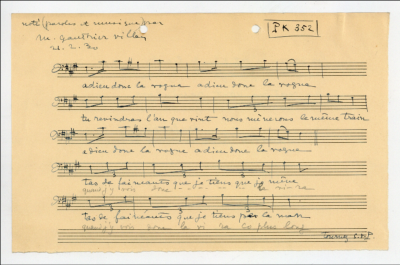 noté (paroles et musique) par
PK 352
M. Gauthier Villars
21. 2. 30
adieu donc la vogue adieu donc la vogue
tu reviendras l'an que vint nous mènerons le même train
adieu donc la vogue adieu donc la vogue
tas de faineants que je tiens que je mène
quand j'y vois donc la vi ra
tas de faineants que je tiens par la main
quand j'y vois donc la vi ra le plus long